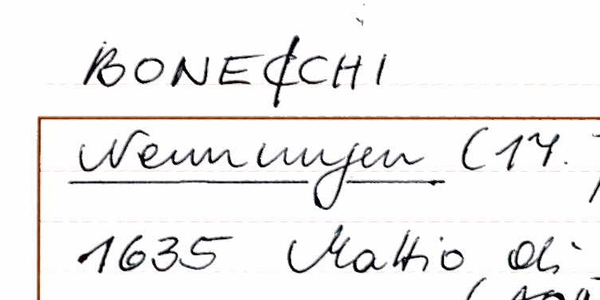 BONECCHI
Nennungen (17.
1635 Mattio di